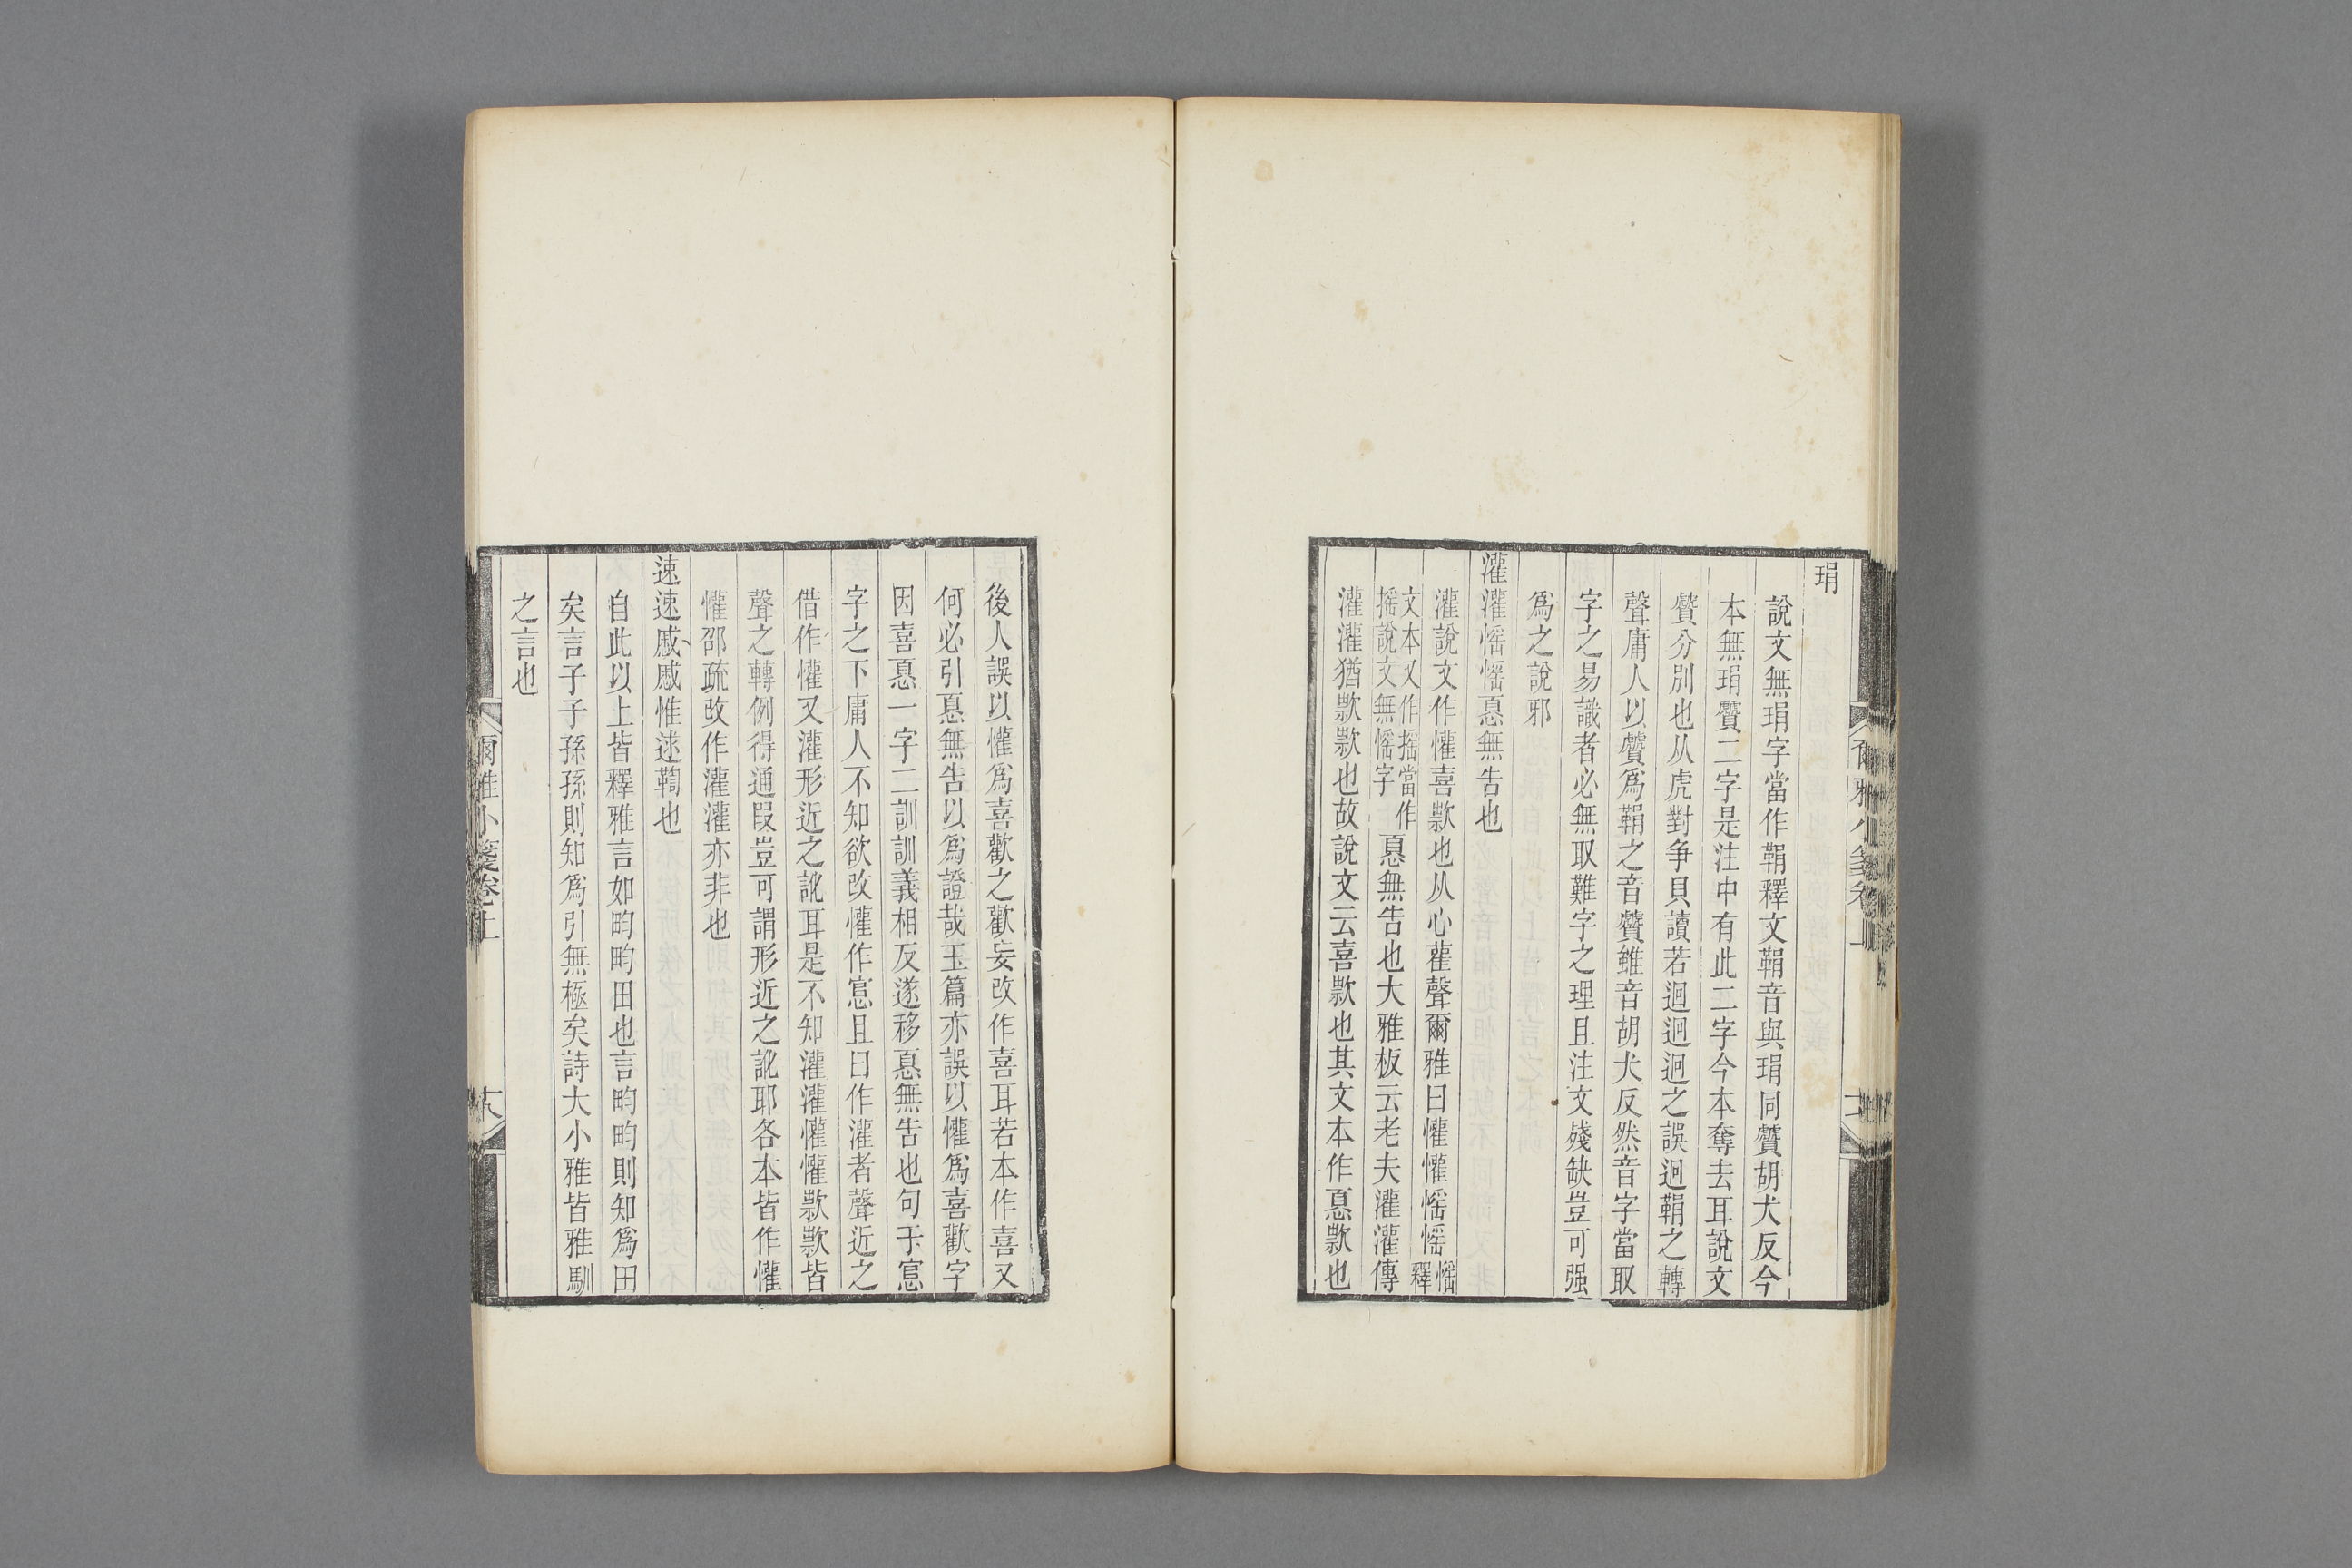 琄
說文無琄字當作鞙釋文鞙音與琄同贙胡犬反今
本無琄贙二字是注中有此二字今本奪去耳說文
贙分別也从虎對争貝讀若迴迴迴之誤迴鞙之轉
聲庸人以贙爲鞙之音贙雖音胡犬反然音字當取
字之易識者必無取難字之理且注文殘缺豈可强
爲之說邪
灌灌愮愮憂無告也
灌說文作懽喜款也从心雚聲爾雅曰懽懽愮愮愮釋
文本又作揺當作揺說文無愮字憂無告也大雅板云老夫灌灌傳
灌灌猶款款也故說文云喜款也其文本作憂款也
後人誤以懽爲喜歡之歡妄改作喜耳若本作喜又
何必引憂無告以爲證哉玉篇亦誤以懽爲喜歡字
因喜憂一字二訓訓義相反遂移憂無告也句于悹
字之下庸人不知欲改懽作悹且曰作灌者聲近之
借作懽又灌形近之訛耳是不知灌灌懽懽款款皆
聲之轉例得通叚豈可謂形近之訛耶各本皆作懽
懽邵疏改作灌灌亦非也
速速慼慼惟逑鞫也
自此以上皆釋雅言如畇畇田也言畇畇則知爲田
矣言子子孫孫則知爲引無極矣詩大小雅皆雅馴
之言也
爾雅小箋卷上